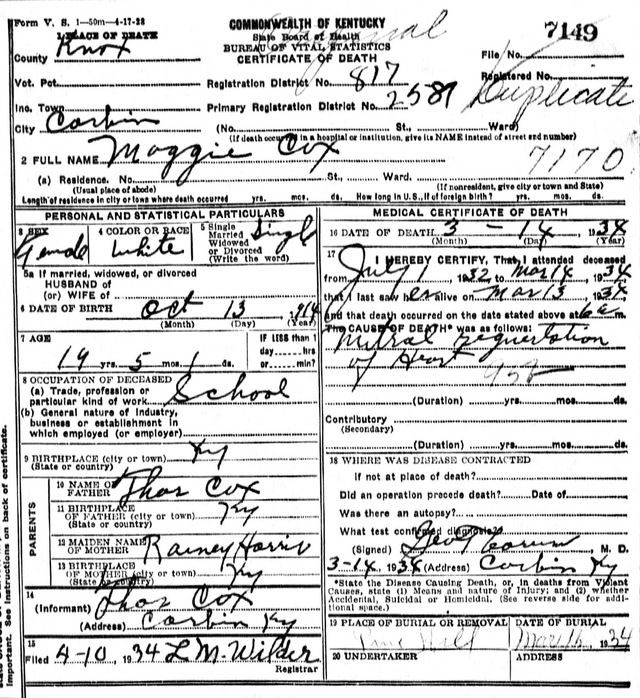 Form V. S. 1—50m—4-17-28
COMMONWEALTH OF KENTUCKY
State Board of Health
BUREAU OF VITAL STATISTICS
CERTIFICATE OF DEATH
7149
1 PLACE OF DEATH
County Knox
File No.
Vot. Pct. Registration District No. 817 Registered No.
Duplicate
Inc. Town Primary Registration District No. 2587
City Corbin (No. St., Ward)
(If death occurred in a hospital or institution, give its NAME instead of street and number)
2 FULL NAME Maggie Cox 7170
(a) Residence. No. St., Ward.
(Usual place of abode) (If nonresident, give city or town and State)
Length of residence in city or town where death occurred yrs. mos. ds. How long in U.S., if of foreign birth? yrs. mos. ds.
PERSONAL AND STATISTICAL PARTICULARS
3 SEX Female
4 COLOR OR RACE White
5 Single Married Widowed or Divorced (Write the word) Single
5a If married, widowed, or divorced
HUSBAND of
(or) WIFE of
6 DATE OF BIRTH Oct 13 1914
(Month) (Day) (Year)
7 AGE
19 yrs. 5 mos. 1 ds.
IF LESS than 1
day hrs
or min?
8 OCCUPATION OF DECEASED
(a) Trade, profession or
particular kind of work School
(b) General nature of industry,
business or establishment in
which employed (or employer)
9 BIRTHPLACE (city or town) Ky
(State or country)
PARENTS
10 NAME OF FATHER Thos Cox
11 BIRTHPLACE
OF FATHER (city or town) Ky
(State or country)
12 MAIDEN NAME
OF MOTHER Rainey Harris
13 BIRTHPLACE
OF MOTHER (city or town) Ky
(State or country)
14
(Informant) Thos Cox
(Address) Corbin Ky
15
Filed 4-10, 1934 L M Wilder
Registrar
MEDICAL CERTIFICATE OF DEATH
16 DATE OF DEATH 3 - 14 , 1934
(Month) (Day) (Year)
17 I HEREBY CERTIFY, That I attended deceased
from July 1, 1932 to Mar 14, 1934
that I last saw her alive on Mar 13, 1934
and that death occurred on the date stated above at 6 a m.
The CAUSE OF DEATH* was as follows:
Mitral regurtation
of Heart
(Duration) yrs. mos. ds.
Contributory
(Secondary)
(Duration) yrs. mos. ds.
18 WHERE WAS DISEASE CONTRACTED
If not at place of death?
Did an operation precede death? Date of
Was there an autopsy?
What test confirmed diagnosis?
(Signed) M. D.
3-14 1934 (Address) Corbin Ky
*State the Disease Causing Death, or, in deaths from Violent
Causes, state (1) Means and nature of Injury; and (2) whether
Accidental, Suicidal or Homicidal. (See reverse side for addi-
tional space.)
19 PLACE OF BURIAL OR REMOVAL DATE OF BURIAL
Pine Hill Mar 16, 1934
20 UNDERTAKER ADDRESS
important. See instructions on back of certificate.